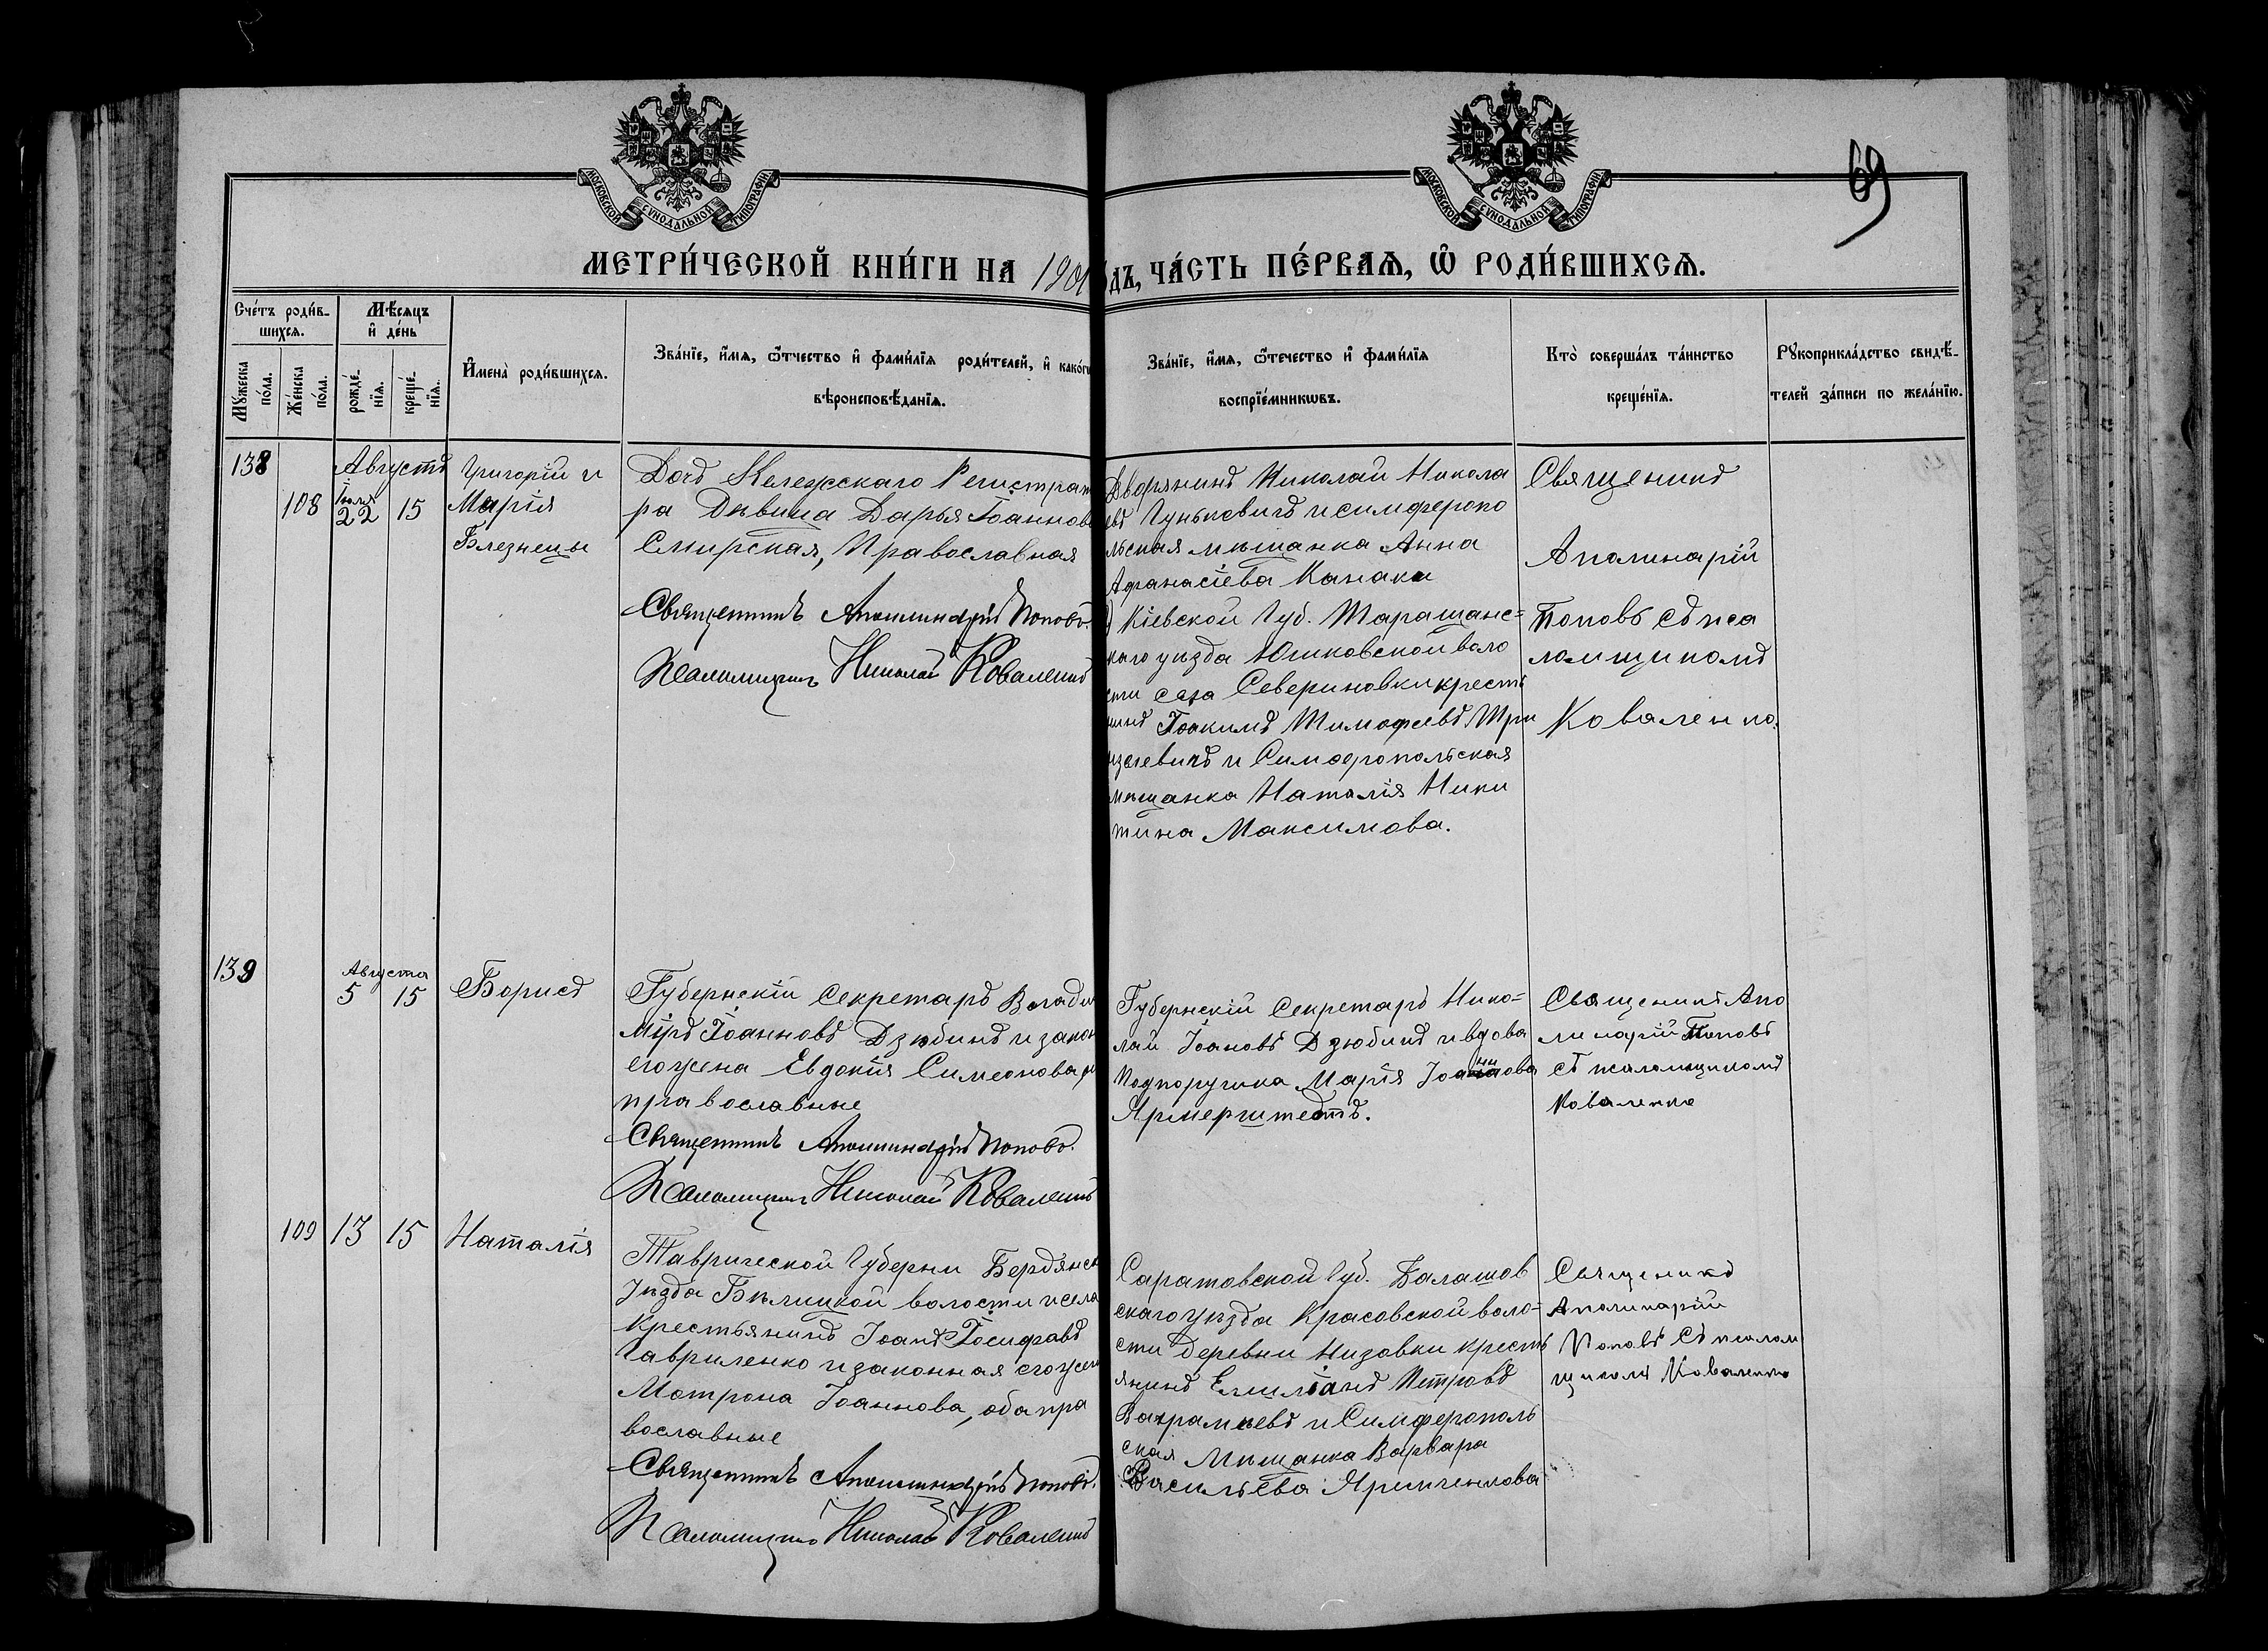 69
МОСКОВСКОЙ СѴНОДАЛЬНОЙ ТИПОГРАФІИ
МОСКОВСКОЙ СѴНОДАЛЬНОЙ ТИПОГРАФІИ
МЕТРИ́ЧЕСКОЙ КНИ́ГИ НА 1901
дъ, ЧА́СТЬ ПЕ́РВАѦ, Ѡ҆ РОДИ́ВШИХСѦ.
Сче́тъ роди́в-
шихсѧ.
Мꙋ́жеска
по́ла.
Же́нска
по́ла.
Мѣ́сѧцъ
и҆ де́нь
рожде́-
нїѧ.
креще́-
нїѧ.
И҆мена̀ роди́вшихсѧ.
Зва́нїе, и҆́мѧ, ѻ҆́тчество и҆ фами́лїѧ роди́телей, и҆ како́гѡ
вѣроисповѣ́данїѧ.
Зва́нїе, и҆́мѧ, ѻ҆́течество и҆ фами́лїѧ
воспрїе́мникѡвъ.
Кто̀ соверша́лъ та́инство
креще́нїѧ.
Рꙋкоприкла́дство свидѣ́-
телей за́писи по жела́нїю.
138
108
Августъ
Іюля
22
15
Григорій и
Марія
Близнецы
Дочь Коллежскаго Регистрат
ра Дѣвица Дарья Іоаннов
Смирская, Православная
Священникъ Аполлинарій Поповъ.
Псаломщикъ Николай Коваленко
Дворянинъ Николай Никола
евъ Гунькевичъ и симферопо
льская мѣщанка Анна
Афанасіева Канаки
Кіевской Губ. Таращанс=
каго уѣзда Юшковской воло
сти села Севериновки кресть
нинъ Іоакимъ Тимофеевъ Три
и Симферопольская
мѣщанка Наталія Ники
тина Максимова.
Священикъ
Аполинарій
Поповъ съ пса
ломщикомъ
Коваленко.
139
Августа
5
15
Борисъ
Губернскій Секретарь Влади
міръ Іоанновъ Дзюбинъ и закон
его жена Евдокія Симеонова
православные
Священникъ Аполлинарій Поповъ.
Псаломщикъ Николай Коваленко
Губернскій Секретарь Нико=
лай Іоановъ Дзюбинъ и вдова
Подпоручика Марія Іоаннова
Ярмерштедтъ.
Священикъ Апо
линарій Поповъ
съ псаломщикомъ
Коваленко
109
13
15
Наталія
Таврической Губерни Бердянск
Уѣзда Бѣлицкой волости и села
Крестьянинъ Іоанъ Іосифовъ
Гавриленко и законная его жен
Мотрона Іоаннова, оба пра
вославные
Священникъ Аполлинарій Поповъ.
Псаломщикъ Николай Коваленко
Саратовской Губ. Балашов
скаго уѣзда Красовской воло-
сти деревни Низовки кресть
янинъ Емиліанъ Петровъ
Вахрамѣевъ и Симферополь
ская Мѣщанка Варвара
Васильева
Священикъ
Аполинарій
Поповъ Съ псалом
щикомъ Коваленко